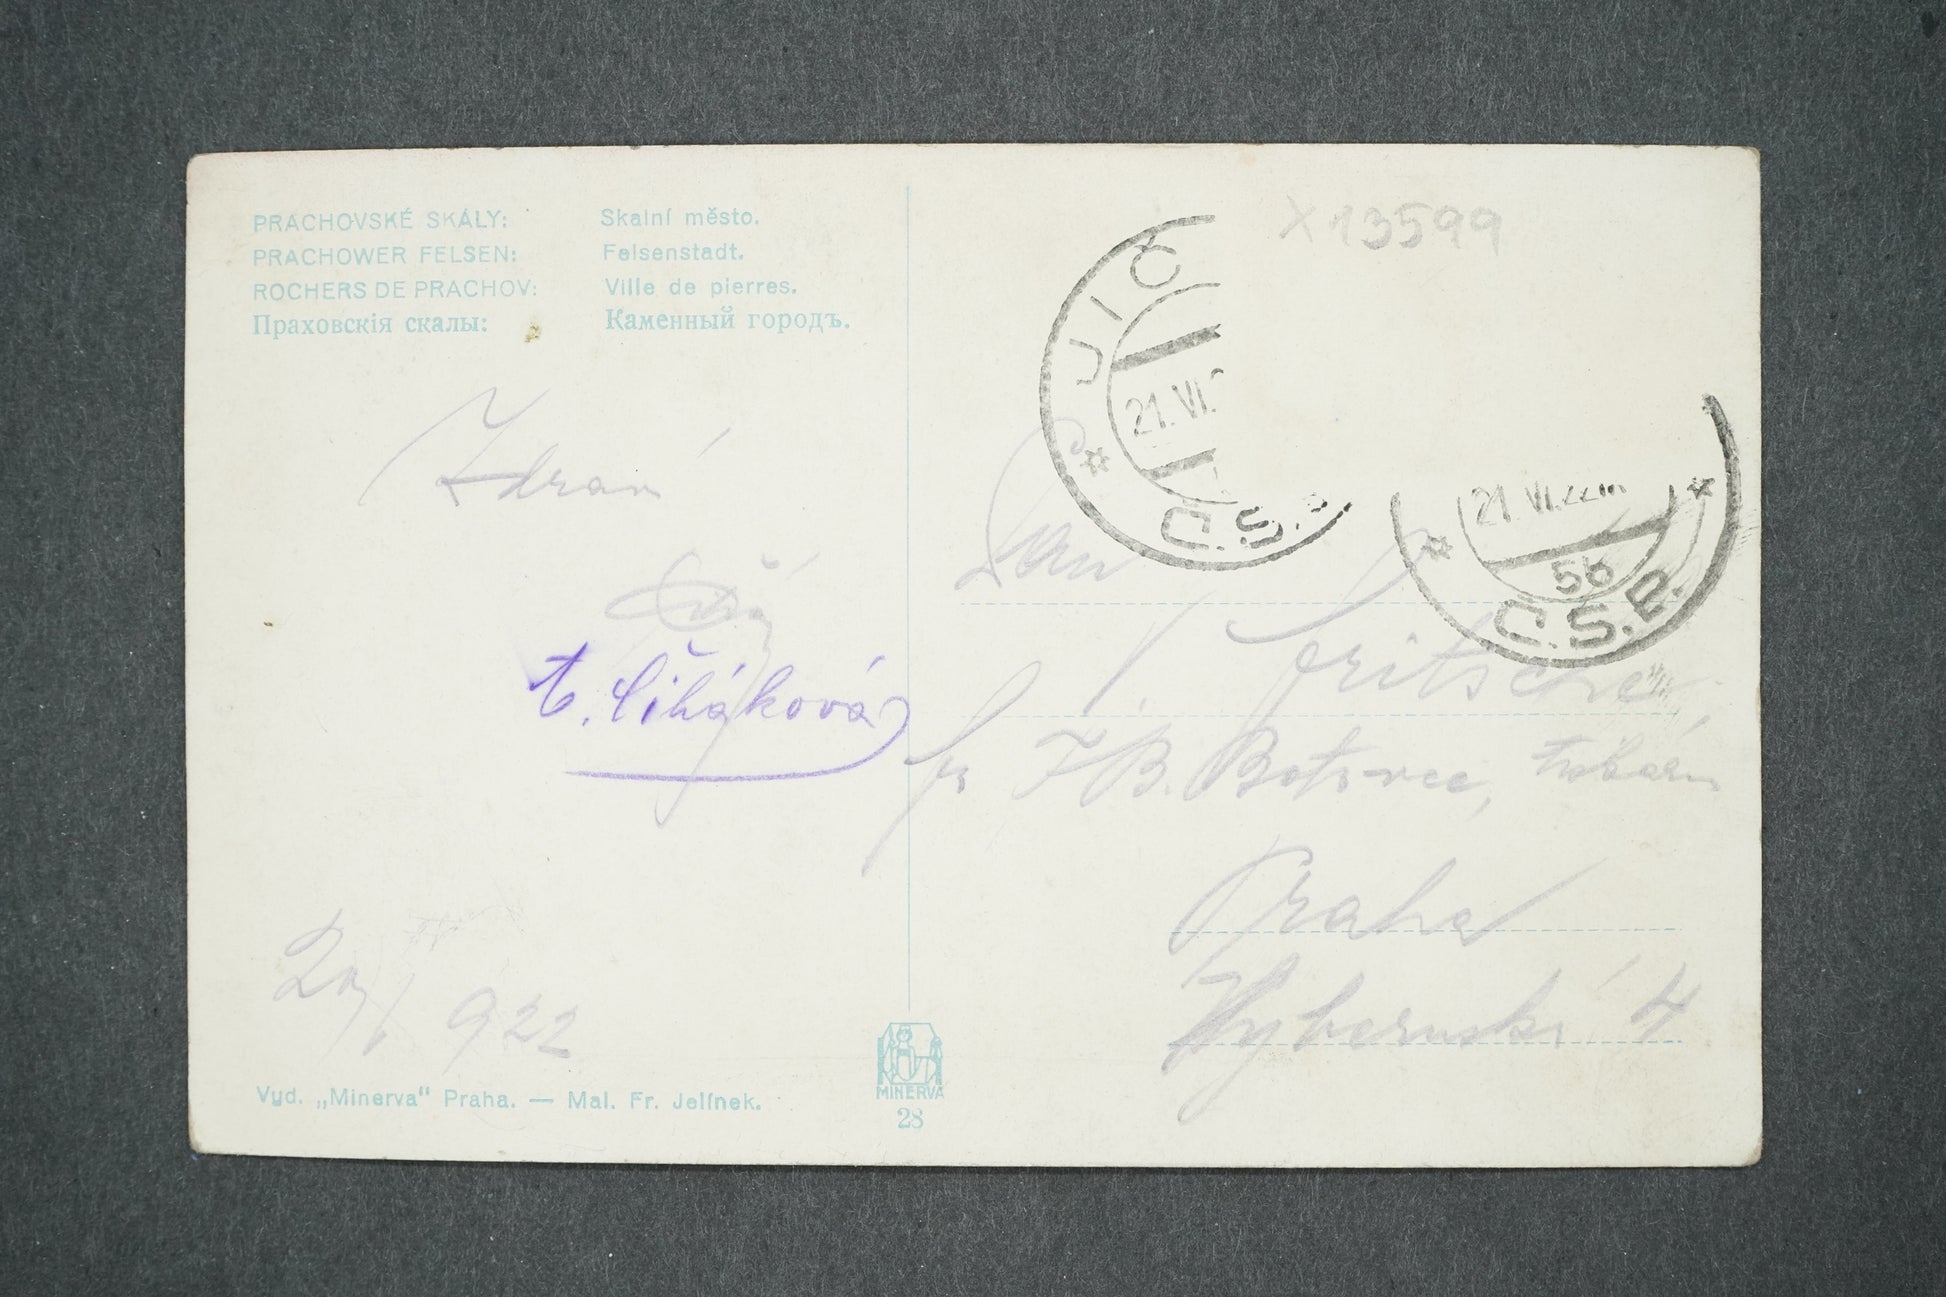 PRACHOVSKÉ SKÁLY: Skalní město.
PRACHOWER FELSEN: Felsenstadt.
ROCHERS DE PRACHOV: Ville de pierres.
Праховскія скалы: Каменный городъ.
X 13599
JIČ
21. VI.
Č.S.
21. VI. 22
5b
Č.S.R.
Zdraví
Pan
Fritsche,
fr J.B. Batovec,
A. Čiháková
Praha
Hybernská 4
922
Vyd. „Minerva" Praha. — Mal. Fr. Jelínek.
MINERVA
28